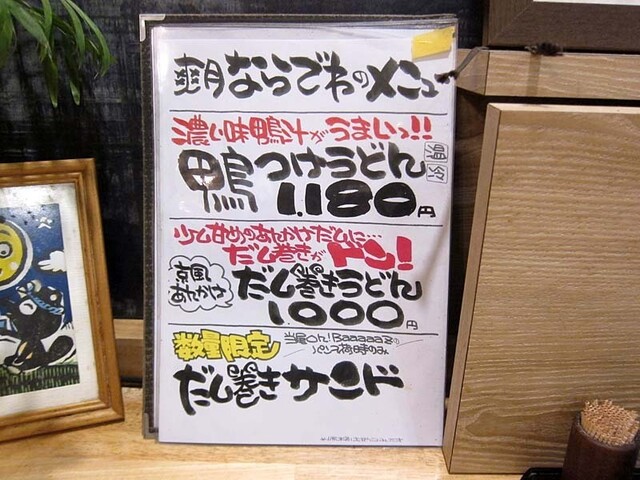 爽月ならでわのメニュー
濃い味鴨汁がうまいっ!!
鴨つけうどん
1,180円
少し甘めのあんかけだしに…
だし巻きがドン!
京風あんかけ
だし巻きうどん
1000円
数量限定
パンズ入荷時のみ
だし巻きサンド